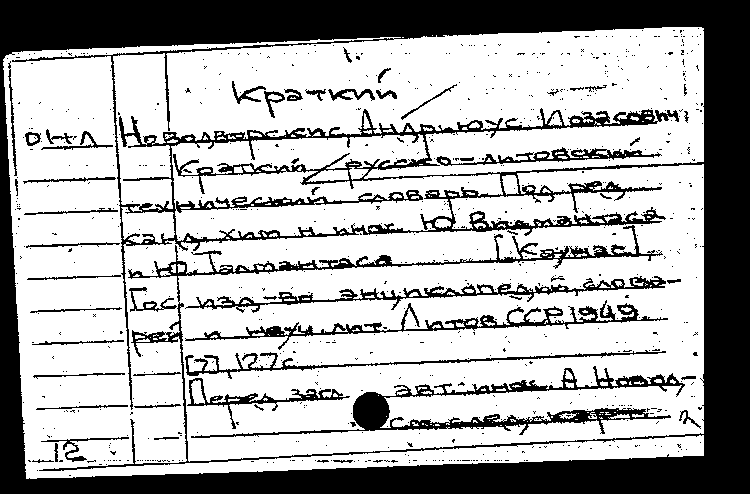 1.
Краткий
ОНЛ Новодворскис, Андрюус Иозасович,
Краткий русско-литовский
технический словарь. Под ред.
канд. хим. н. инж. Ю. Видмантаса
и Ю. Далмантаса [Каунас],
Гос. изд-во энциклопедий, слова-
рей и науч. лит. Литов. ССР, 1949.
[7], 127 с.
Перед загл. авт.: инж. А. Новод-
См. след. карт. 2
12